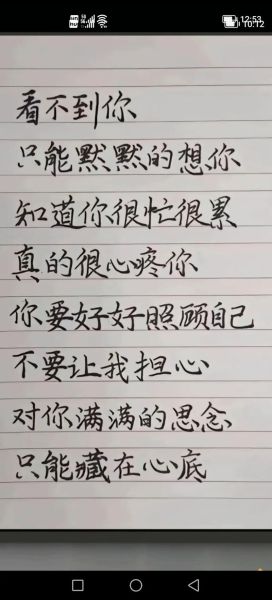 12:53
10:12
看不到你
只能默默的想你
知道你很忙很累
真的很心疼你
你要好好照顾自己
不要让我担心
对你满满的思念
只能藏在心底